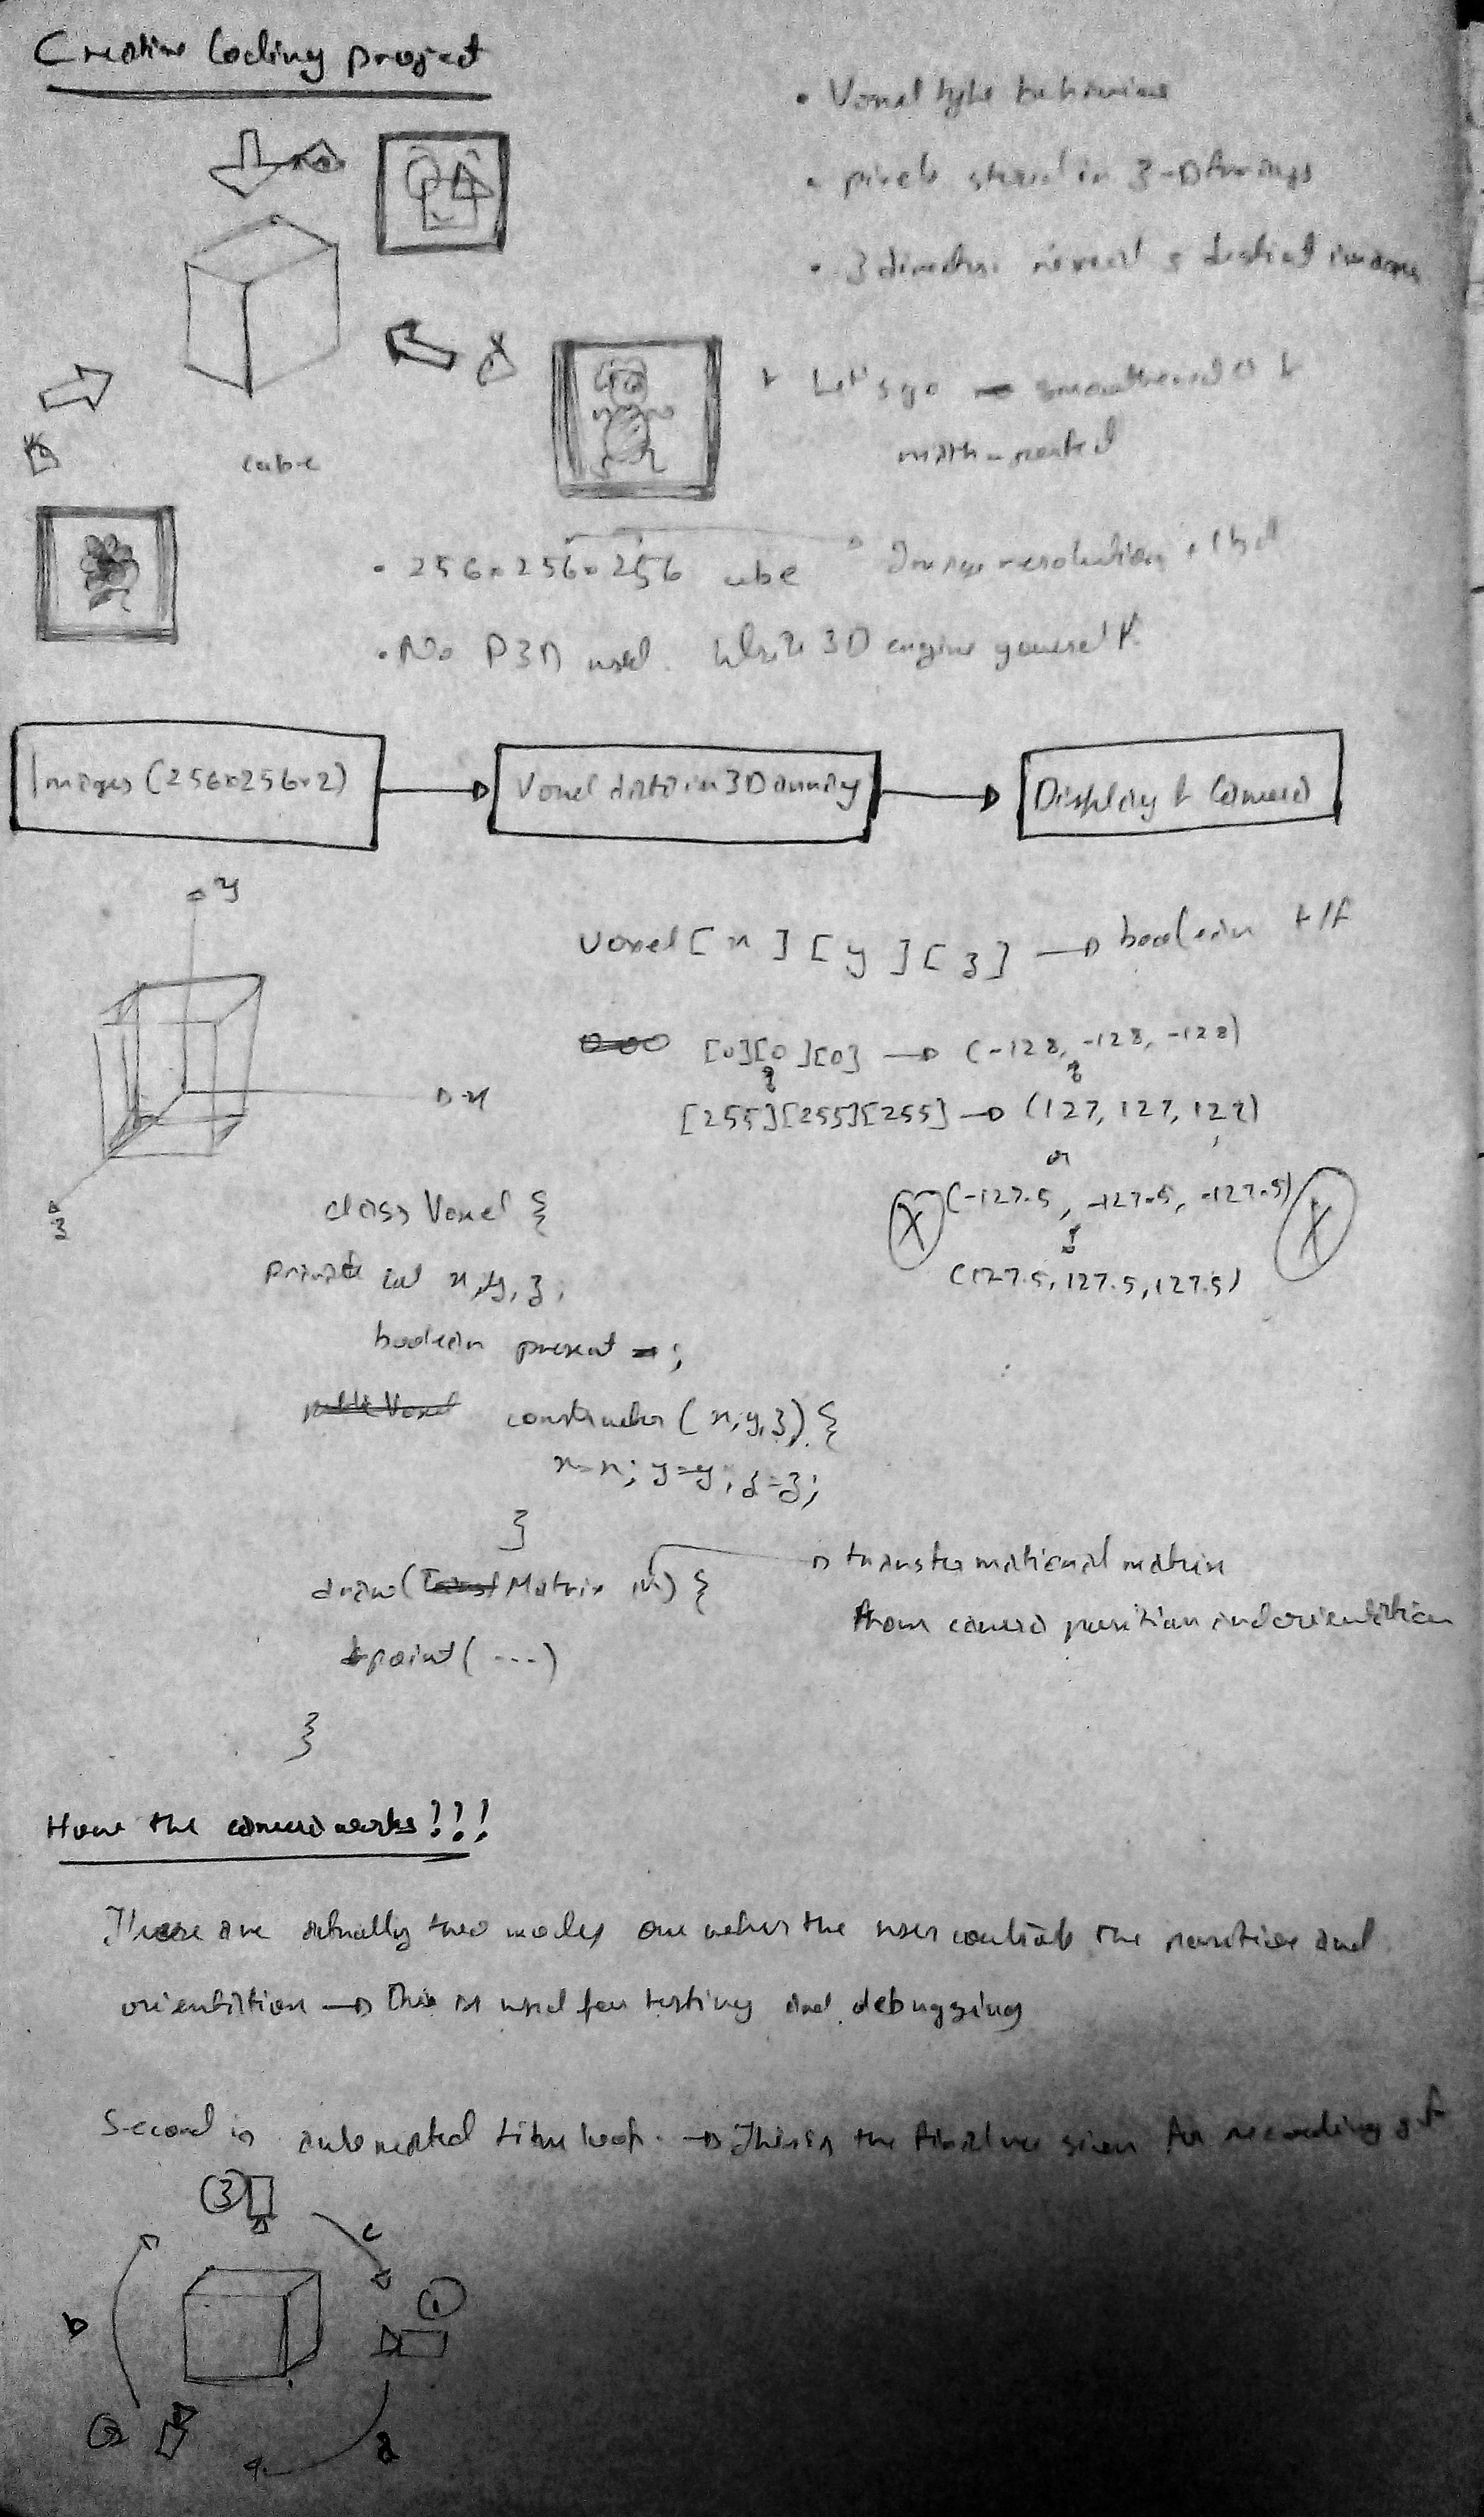 Creative Coding project
• Voxel type behaviour
• pixels stored in 3-D Arrays
• 3 direction reveal 3 distinct images
cube
+ Let's go
• 256 × 256 × 256 cube
Image resolution
• No P3D used. Write 3D engine yourself.
Images (256×256×2)
Voxel data in 3D array
Display & Camera
y
x
z
voxel [ x ] [ y ] [ z ] → boolean t/f
[0][0][0] → (-128, -128, -128)
[255][255][255] → (127, 127, 127)
or
X (-127.5, -127.5, -127.5) X
(127.5, 127.5, 127.5)
class Voxel {
private int x, y, z;
boolean present ;
constructor (x, y, z) {
x=x; y=y; z=z;
}
draw( Matrix m) {
→ transformational matrix
from camera position and orientation
point( ... )
}
How the camera works!!!
There are actually two modes one where the user controls the position and
orientation → This is used for testing and debugging
Second is automated time loop. → This is the final one given for recording gif
(3)
c
(1)
b
(2)
a